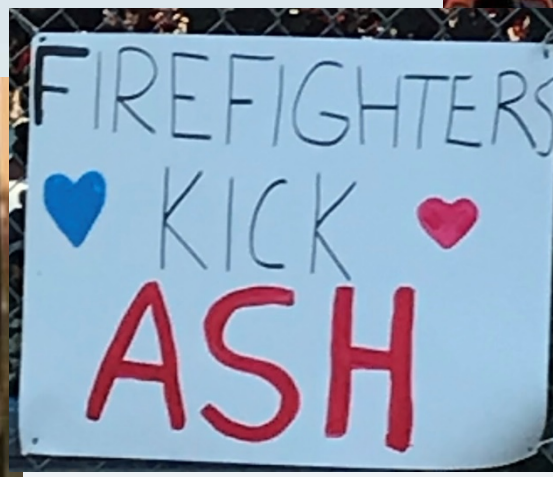 FIREFIGHTERS
KICK
ASH